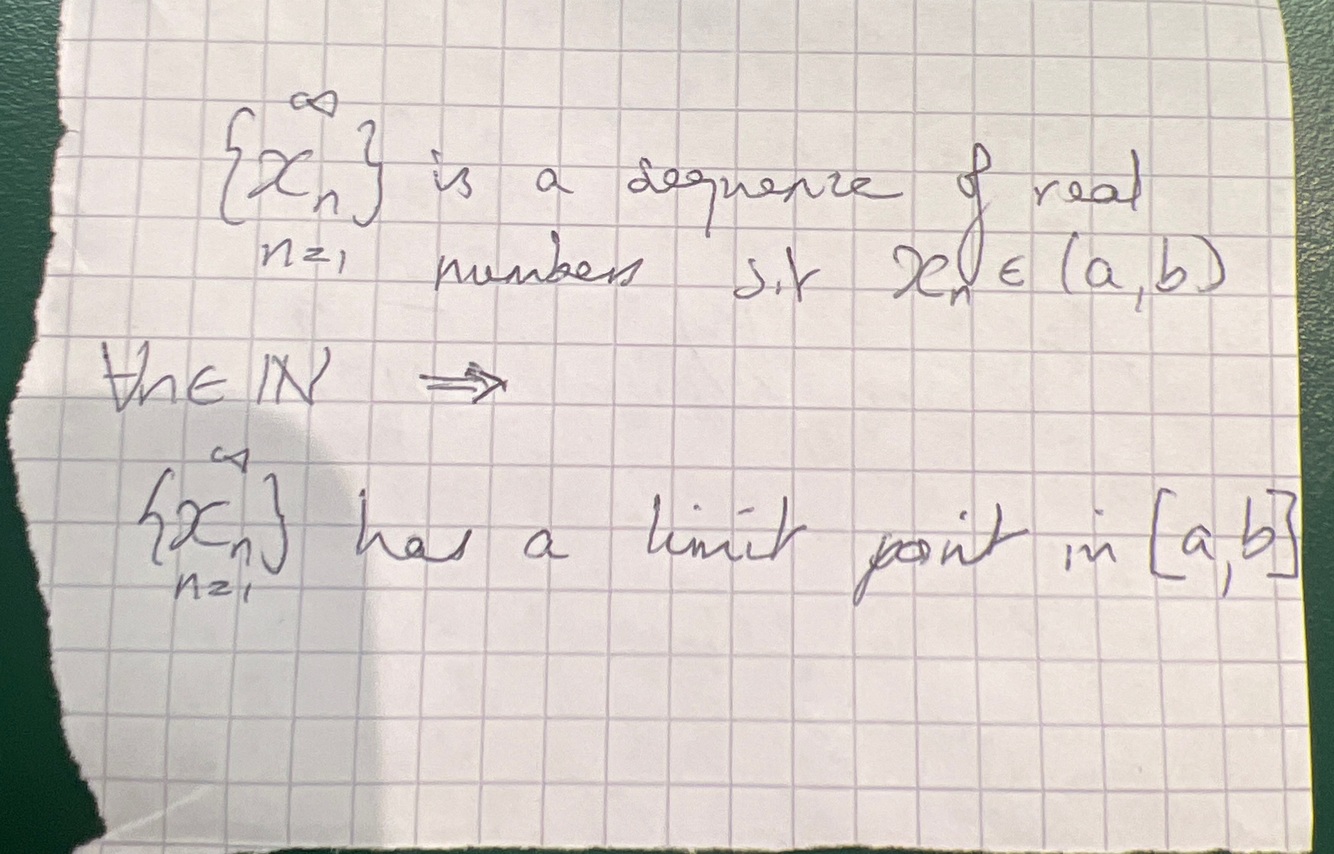 {xₙ}_{n=1}^∞ is a sequence of real
numbers s.t xₙ ∈ (a,b)
∀n∈ℕ ⇒
{xₙ}_{n=1}^∞ has a limit point in [a,b]